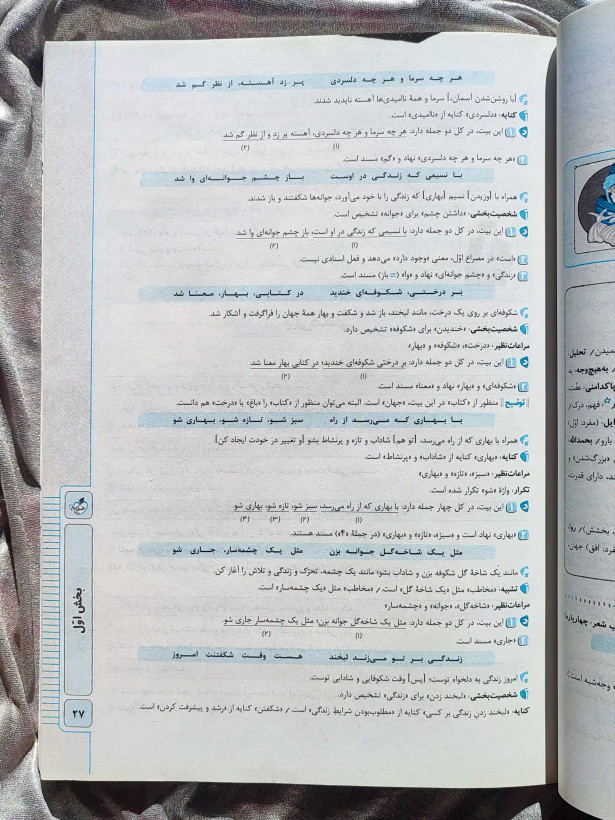 هر چه سرما و هر چه دلسردی پر زد آهسته، از نظر گم شد
[با روشن‌شدن آسمان،] سرما و همهٔ ناامیدی‌ها آهسته ناپدید شدند.
کنایه: «دلسردی» کنایه از «ناامیدی» است.
۱ این بیت، در کل دو جمله دارد: هر چه سرما و هر چه دلسردی، آهسته پر زد و از نظر گم شد.
(۱) (۲)
۲ «هر چه سرما و هر چه دلسردی» نهاد و «گم» مسند است.
با نسیمی که زندگی در اوست باز چشم جوانه‌ای وا شد
همراه با [وزیدن] نسیم [بهاری] که زندگی را با خود می‌آورد، جوانه‌ها شکفتند و باز شدند.
شخصیت‌بخشی: «داشتن چشم» برای «جوانه» تشخیص است.
۱ این بیت، در کل دو جمله دارد: با نسیمی که زندگی در او است، باز چشم جوانه‌ای وا شد.
(۱) (۲)
۲ «است» در مصراع اوّل، معنی «وجود دارد» می‌دهد و فعل اسنادی نیست.
۳ «زندگی» و «چشم جوانه‌ای» نهاد و «وا» (= باز) مسند است.
بر درختی، شکوفه‌ای خندید در کتابی، بهار، معنا شد
شکوفه‌ای بر روی یک درخت، مانند لبخند، باز شد و شکفت و بهار همهٔ جهان را فراگرفت و آشکار شد.
شخصیت‌بخشی: «خندیدن» برای «شکوفه» تشخیص دارد.
مراعات‌نظیر: «درخت»، «شکوفه» و «بهار»
۱ این بیت، در کل دو جمله دارد: بر درختی شکوفه‌ای خندید؛ در کتابی بهار معنا شد.
(۱) (۲)
۲ «شکوفه‌ای» و «بهار» نهاد و «معنا» مسند است.
توضیح منظور از «کتاب» در این بیت، «جهان» است. البته می‌توان منظور از «کتاب» را «باغ» یا «درخت» هم دانست.
با بهاری که می‌رسد از راه سبز شو، تازه شو، بهاری شو
همراه با بهاری که از راه می‌رسد، [تو هم] شاداب و تازه و پرنشاط بشو [و تغییر در خودت ایجاد کن].
کنایه: «بهاری» کنایه از «شاداب» و «پرنشاط» است.
مراعات‌نظیر: «سبز»، «تازه» و «بهاری»
تکرار: واژهٔ «شو» تکرار شده است.
۱ این بیت، در کل چهار جمله دارد: با بهاری که از راه می‌رسد، سبز شو، تازه شو، بهاری شو.
(۱) (۲) (۳) (۴)
۲ «بهاری» نهاد است و «سبز»، «تازه» و «بهاری» (در جملهٔ «۴») مسند هستند.
مثل یک شاخه‌گل جوانه بزن مثل یک چشمه‌سار، جاری شو
مانند یک شاخهٔ گل شکوفه بزن و شاداب بشو؛ مانند یک چشمه، تحرّک و زندگی و تلاش را آغاز کن.
تشبیه: «مخاطب» مثل «یک شاخهٔ گل» است. / «مخاطب» مثل «یک چشمه‌سار» است.
مراعات‌نظیر: «شاخه‌گل»، «جوانه» و «چشمه‌سار»
۱ این بیت، در کل دو جمله دارد: مثل یک شاخه‌گل جوانه بزن؛ مثل یک چشمه‌سار جاری شو.
(۱) (۲)
۲ «جاری» مسند است.
زندگی بر تو می‌زند لبخند هست وقت شکفتنت امروز
امروز زندگی به دلخواه توست؛ [پس] وقت شکوفایی و شادابی توست.
شخصیت‌بخشی: «لبخند زدن» برای «زندگی» تشخیص دارد.
کنایه: «لبخند زدنِ زندگی بر کسی» کنایه از «مطلوب‌بودن شرایط زندگی» است. / «شکفتن» کنایه از «رشد و پیشرفت کردن» است.
بخش اوّل
۲۷
تحلیل:
به‌هیچ‌وجه:
پاکدامنی: عفّت،
فهم، درک /
(مفرد: اوّل)
بارو / بحمدالله:
«بزرگ‌شدن» و
دارای قدرت،
بخشش) / روا
(مفرد: افق) جهان،
شعر: چهارپاره
وجه‌شبه است)